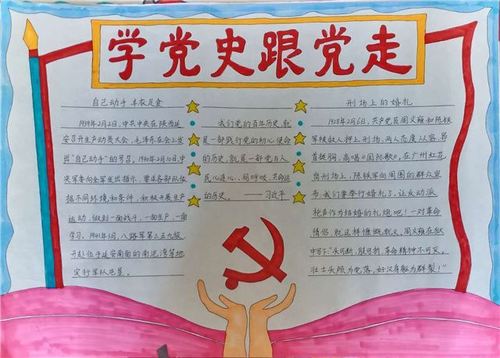 学党史跟党走
自己动手 丰衣足食
1939年2月2日,中共中央在陕西延
安召开生产动员大会,毛泽东在会上发
出"自己动手"的号召。1940年2月10日,中
央军委向全军发出指示,要求各部队依
据不同环境和条件,积极开展生产
运动,做到一面战斗,一面生产,一面
学习。1941年3月,八路军第三五九旅
开赴位于延安南面的南泥湾等地
实行军队屯垦。
我们党的百年历史,就
是一部践行党的初心使命
的历史,就是一部党与人
民心连心、同呼吸、共命运
的历史。——习近平
刑场上的婚礼
1928年2月6日,共产党员周文雍和陈铁
军被敌人押上刑场,两人态度从容,昂
首挺胸,高唱《国际歌》。在广州红花
岗刑场上,陈铁军向周围的群众宣
布:我们要举行婚礼了,让反动派
的枪声作为结婚的礼炮吧!一对革命
情侣,就这样慷慨就义。周文雍在狱
中写下"头可断,肢可折,革命精神不可灭。
壮士头颅为党落,好汉身躯为群裂!"